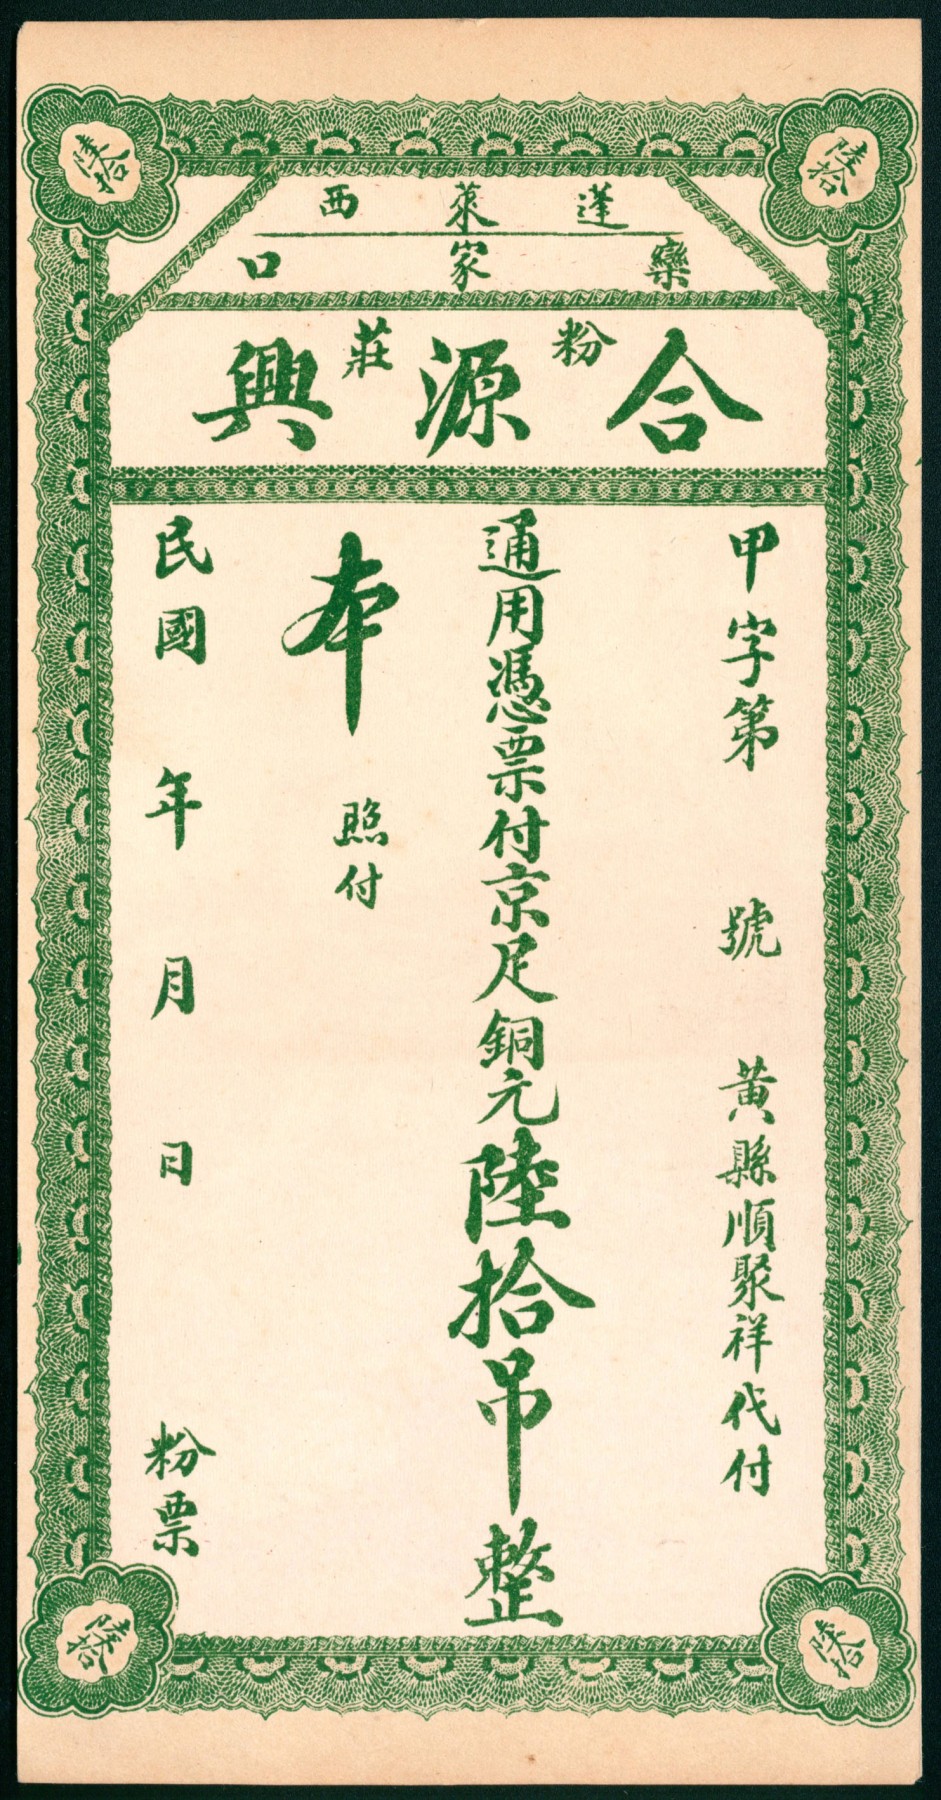 陸拾
陸拾
蓬萊西
欒家口
粉莊
合源興
甲字第 號 黃縣順聚祥代付
通用憑票付京足銅元陸拾吊整
本 照付
民國 年 月 日 粉票
陸拾
陸拾